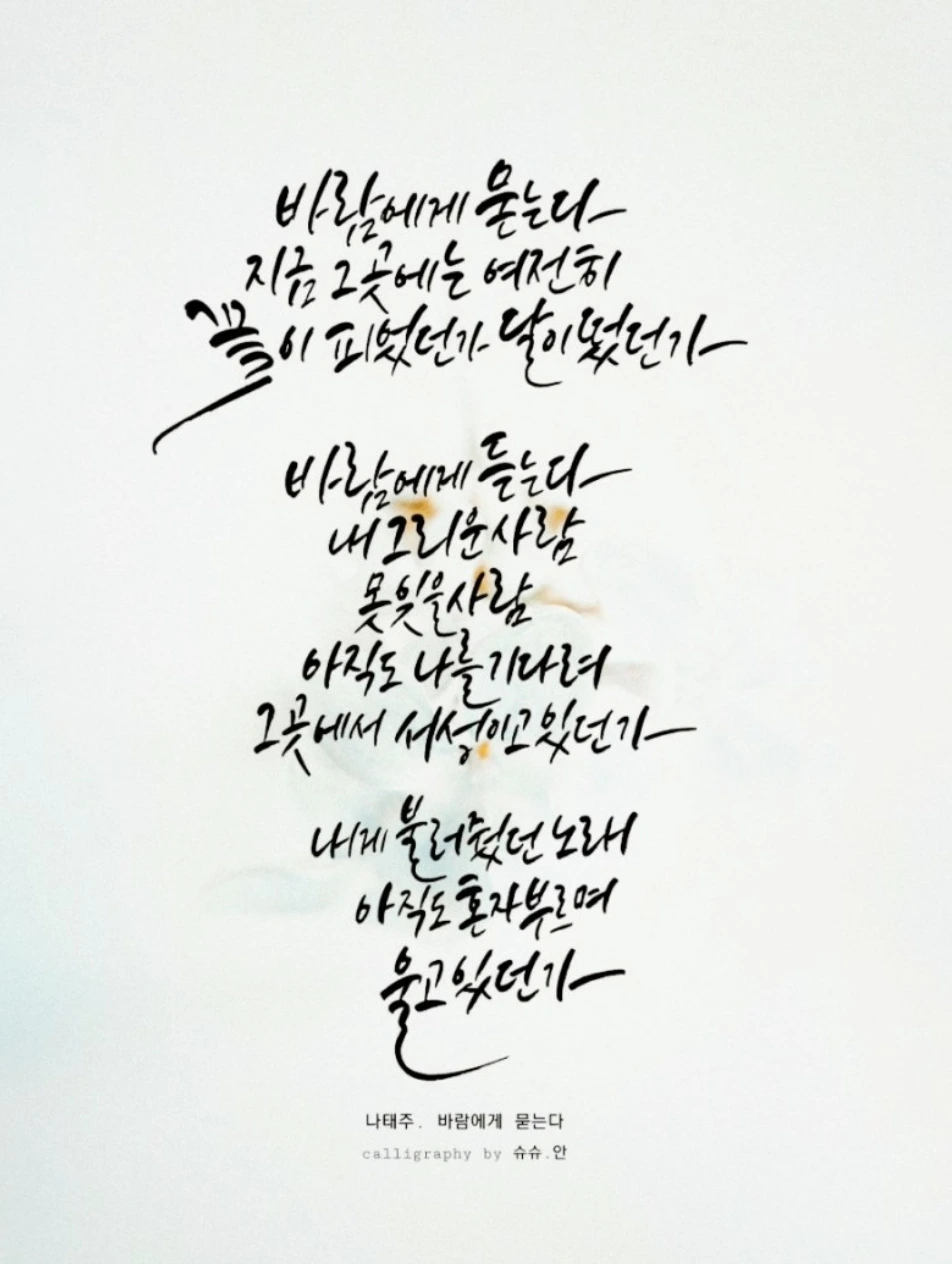 바람에게 묻는다
지금 그곳에는 여전히
꽃이 피었던가 달이 떴던가
바람에게 듣는다
내 그리운 사람
못 잊을 사람
아직도 나를 기다려
그곳에서 서성이고 있던가
내게 불러줬던 노래
아직도 혼자 부르며
울고 있던가
나태주. 바람에게 묻는다
calligraphy by 슈슈.안